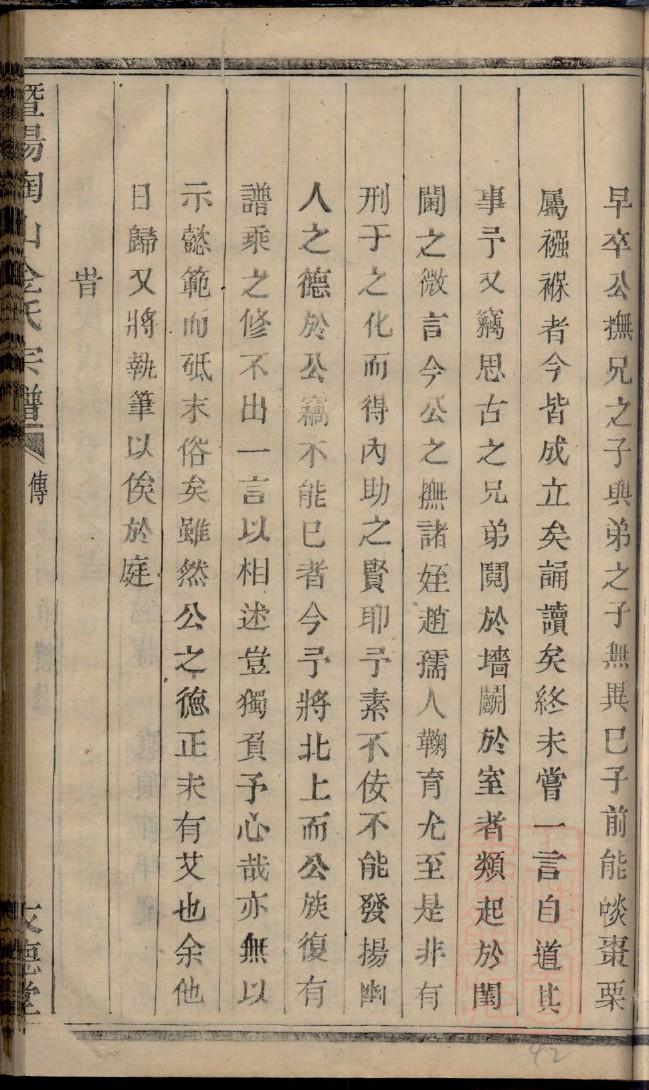 早卒公撫兄之子與弟之子無異已子前能啖棗栗
屬襁褓者今皆成立矣誦讀矣終未嘗一言自道其
事予又竊思古之兄弟鬩於墻鬭於室者類起於閨
閫之微言今公之撫諸姪趙孺人鞠育尤至是非有
刑于之化而得內助之賢耶予素不佞不能發揚幽
人之德於公竊不能已者今予將北上而公族復有
譜乘之修不出一言以相述豈獨負予心哉亦無以
示懿範而砥末俗矣雖然公之德正未有艾也余他
日歸又將執筆以俟於庭
旹
暨陽陶山金氏宗譜
傳
文德堂
42